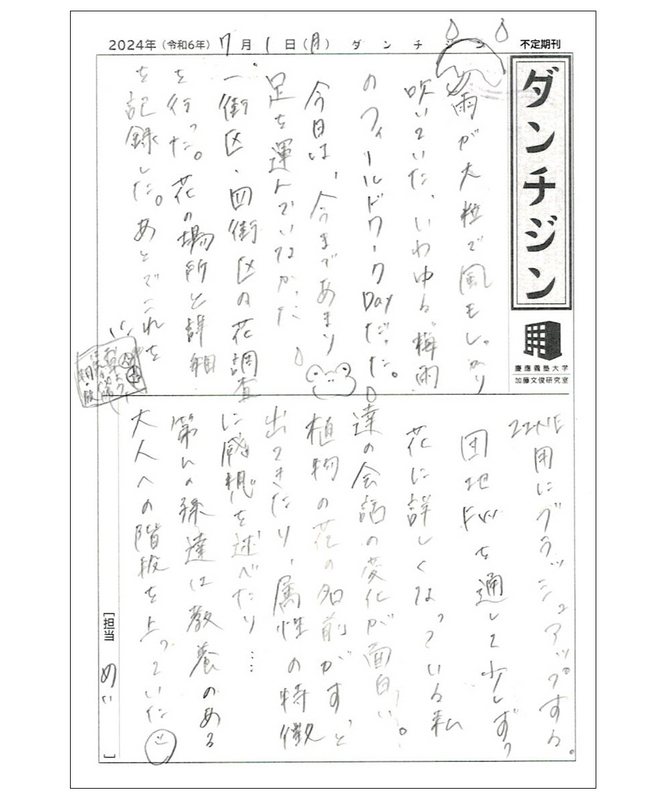 2024年(令和6年)7月1日(月) ダンチジン 不定期刊
ダンチジン
慶應義塾大学
加藤文俊研究室
雨が大粒で風もしっかり
吹いていた、いわゆる"梅雨"
のフィールドワークDayだった。
今日は、今まであまり
足を運んでいなかった
一街区・四街区の花調査
を行った。花の場所と詳細
を記録した。あとでこれを
ZINE用にブラッシュアップする。
団地FWを通して少しずつ
花に詳しくなっている私
達の会話の変化が面白い。
植物の花の名前がすっと
出てきたり、属性の特徴
に感想を述べたり…
第6の孫達は教養のある
大人への階段を上っていた
[担当 めい]